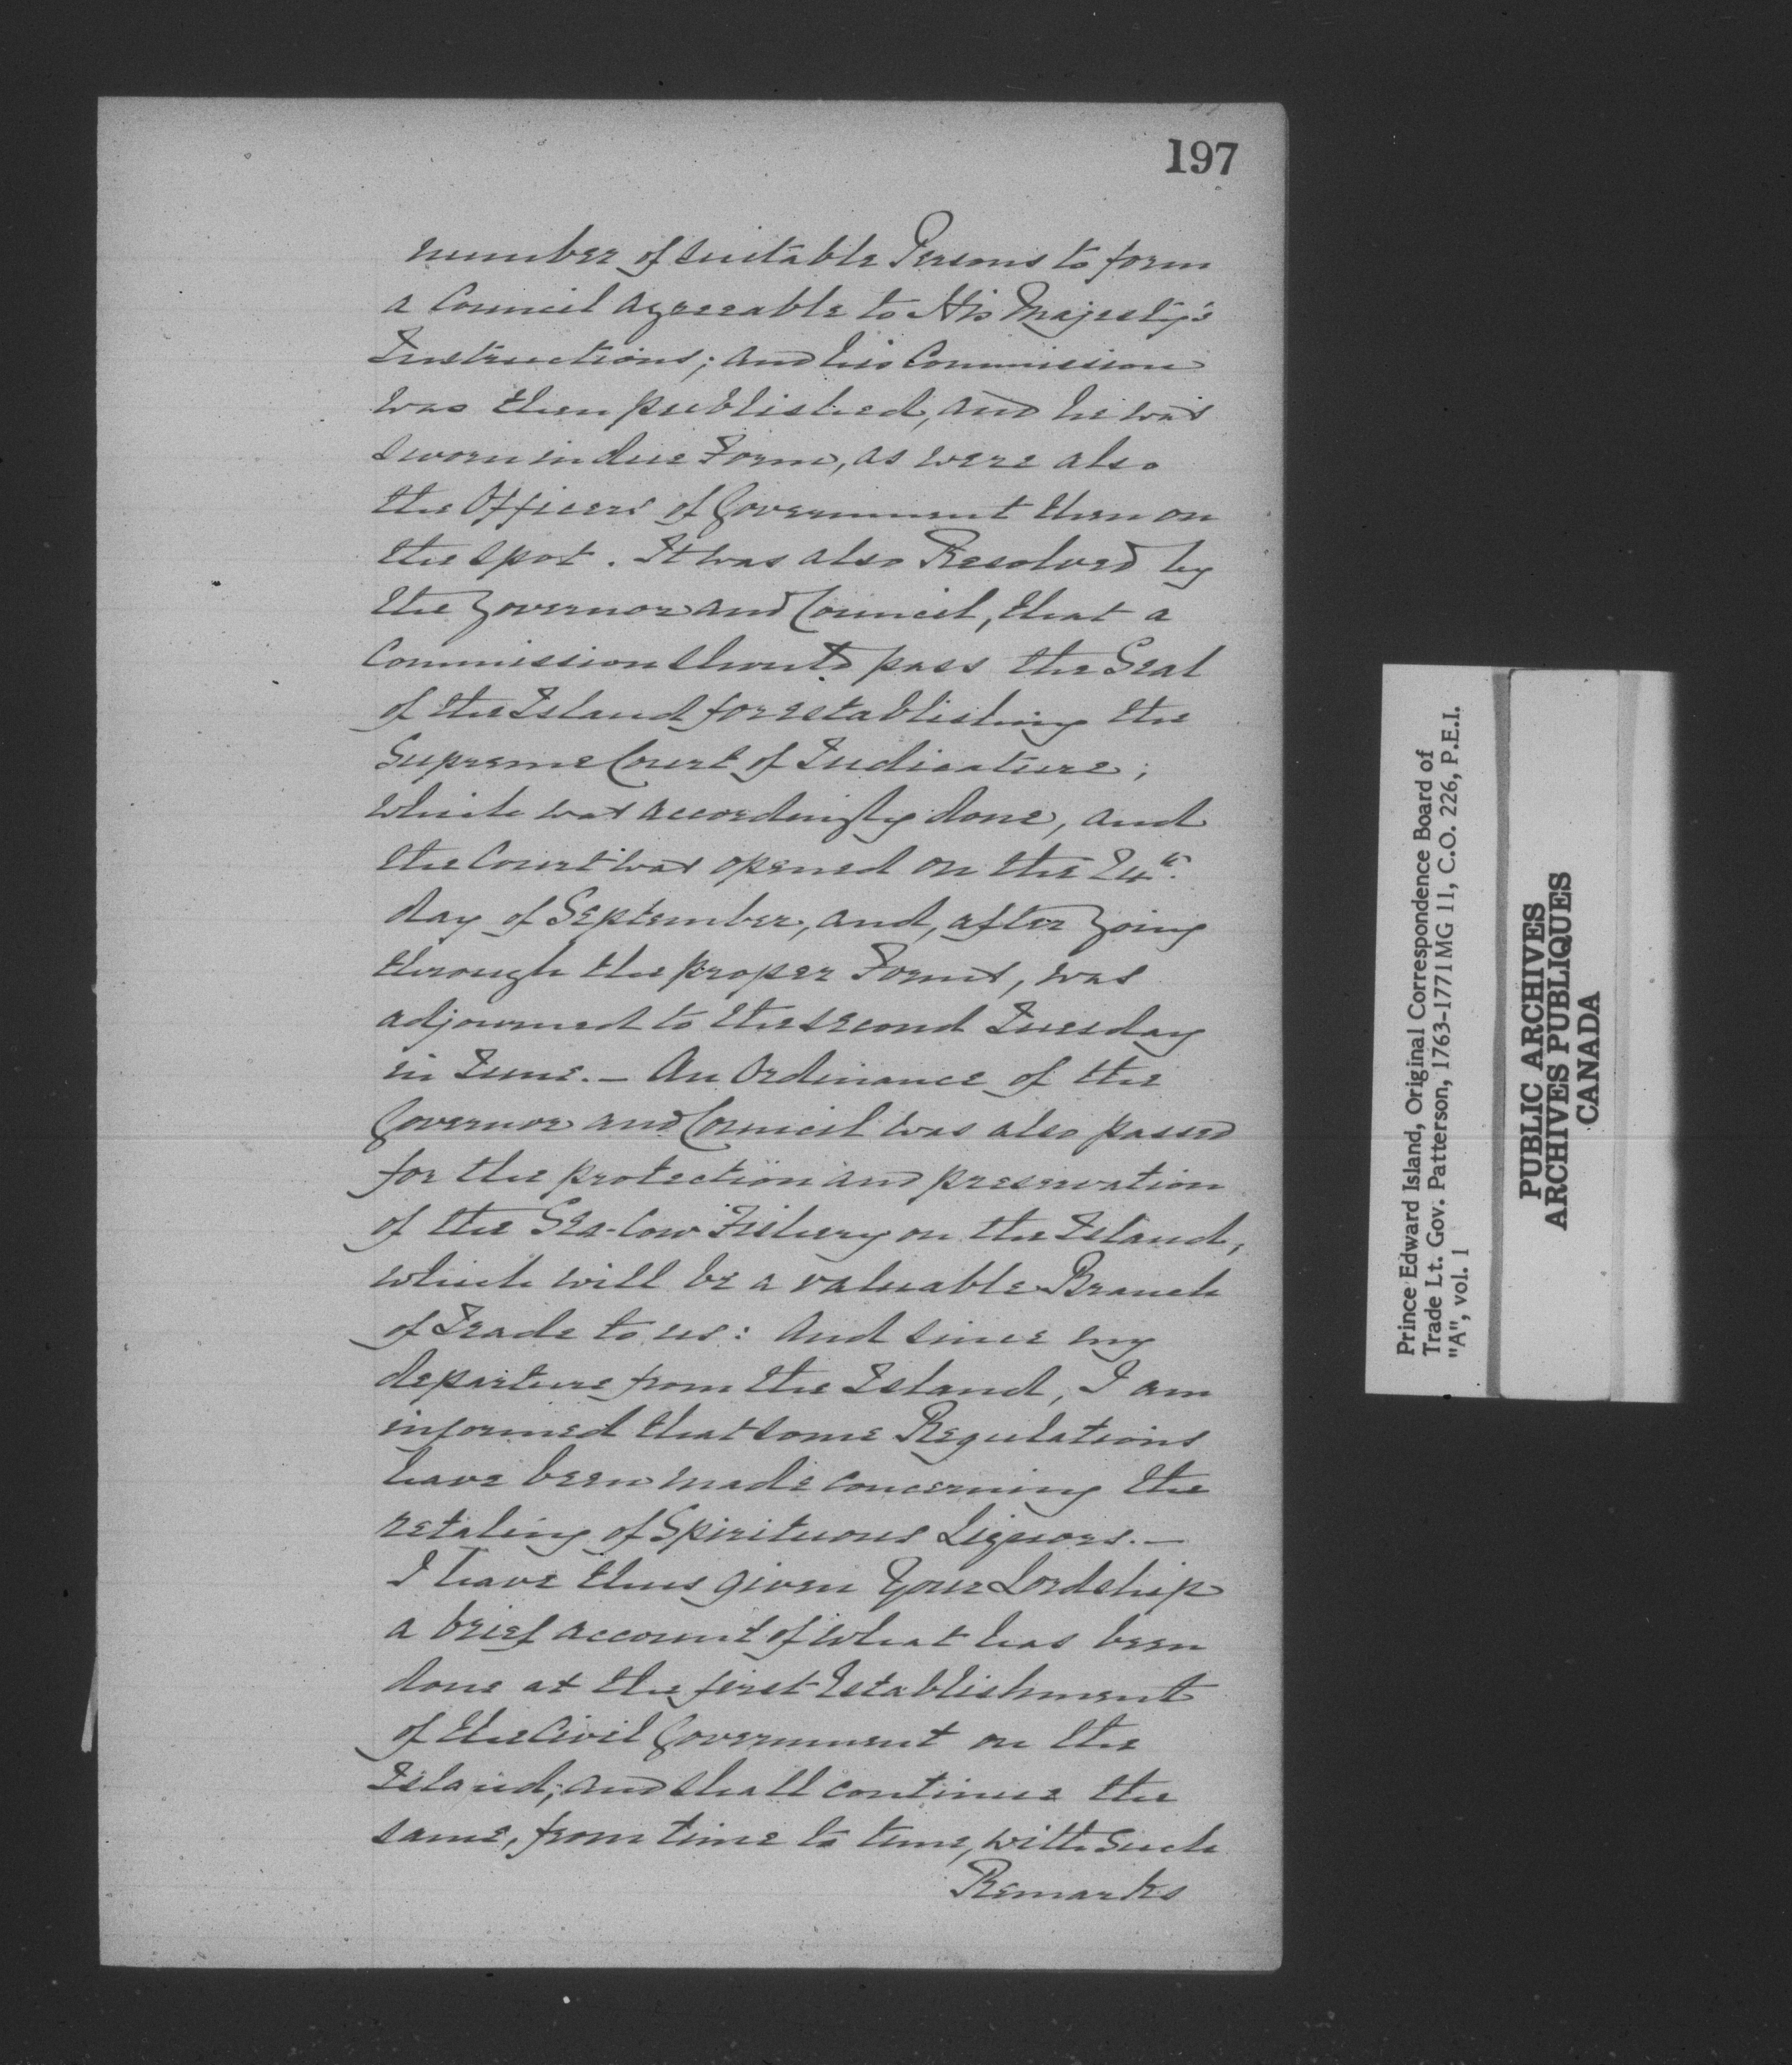 197
number of suitable Persons to form
a Council agreeable to His Majesty's
Instructions; and his Commission
was then published, and he was
sworn in due Form, as were also
the Officers of Government then on
the spot. It was also Resolved by
the Governor and Council, that a
Commission should pass the Seal
of the Island for establishing the
Supreme Court of Judicature;
which was accordingly done, and
the Court was opened on the 24th.
day of September, and, after going
through the proper Forms, was
adjourned to the second Tuesday
in June. — An Ordinance of the
Governor and Council was also passed
for the protection and preservation
of the Sea-Cow Fishery on the Island,
which will be a valuable Branch
of Trade to us: And since my
departure from the Island, I am
informed that some Regulations
have been made concerning the
retaling of Spirituous Liquors. —
I have thus given Your Lordship
a brief account of what has been
done at the first Establishment
of the Civil Government on the
Island; and shall continue the
same, from time to time, with such
Remarks
Prince Edward Island, Original Correspondence Board of
Trade Lt. Gov. Patterson, 1763-1771 MG 11, C.O. 226, P.E.I.
"A", vol. 1
PUBLIC ARCHIVES
ARCHIVES PUBLIQUES
CANADA